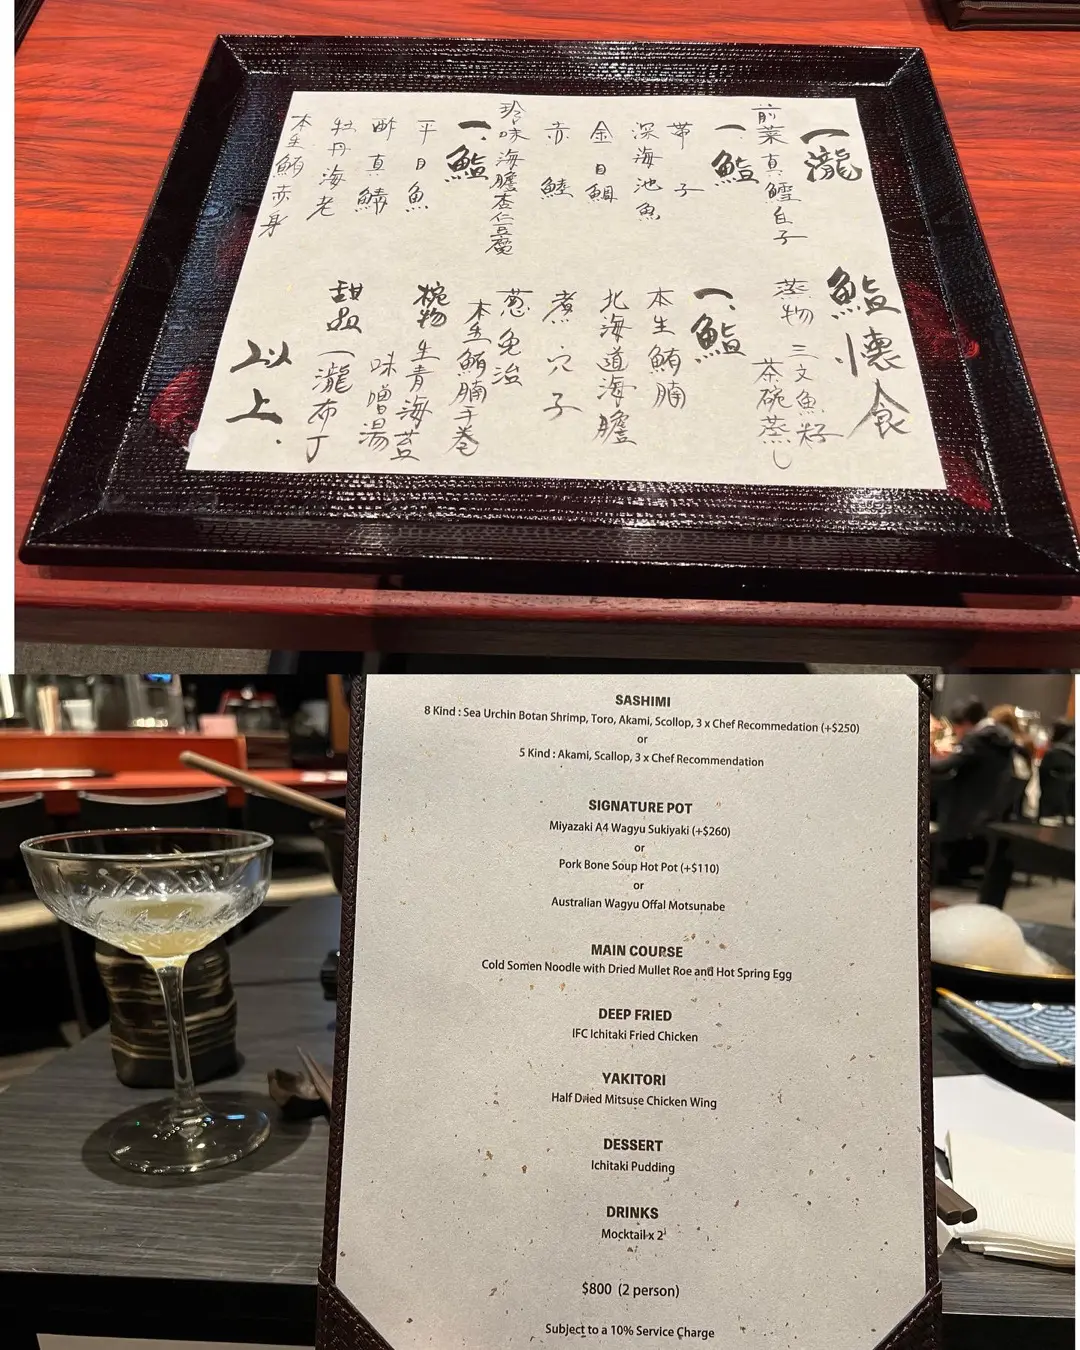 一瀧
鮨懐食
前菜 真鱈白子
蒸物 三文魚籽
茶碗蒸し
一、鮨
帯子
深海池魚
金目鯛
赤鯥
一、鮨
本生鮪腩
北海道海膽
煮穴子
葱免治
本生鮪腩手巻
珍味 海膽杏仁豆腐
一、鮨
平目魚
酢真鯖
牡丹海老
本生鮪赤身
椀物 生青海苔
味噌湯
甜品 一瀧布丁
以上.
SASHIMI
8 Kind : Sea Urchin Botan Shrimp, Toro, Akami, Scollop, 3 x Chef Recommedation (+$250)
or
5 Kind : Akami, Scallop, 3 x Chef Recommendation
SIGNATURE POT
Miyazaki A4 Wagyu Sukiyaki (+$260)
or
Pork Bone Soup Hot Pot (+$110)
or
Australian Wagyu Offal Motsunabe
MAIN COURSE
Cold Somen Noodle with Dried Mullet Roe and Hot Spring Egg
DEEP FRIED
IFC Ichitaki Fried Chicken
YAKITORI
Half Dried Mitsuse Chicken Wing
DESSERT
Ichitaki Pudding
DRINKS
Mocktail x 2
$800 (2 person)
Subject to a 10% Service Charge